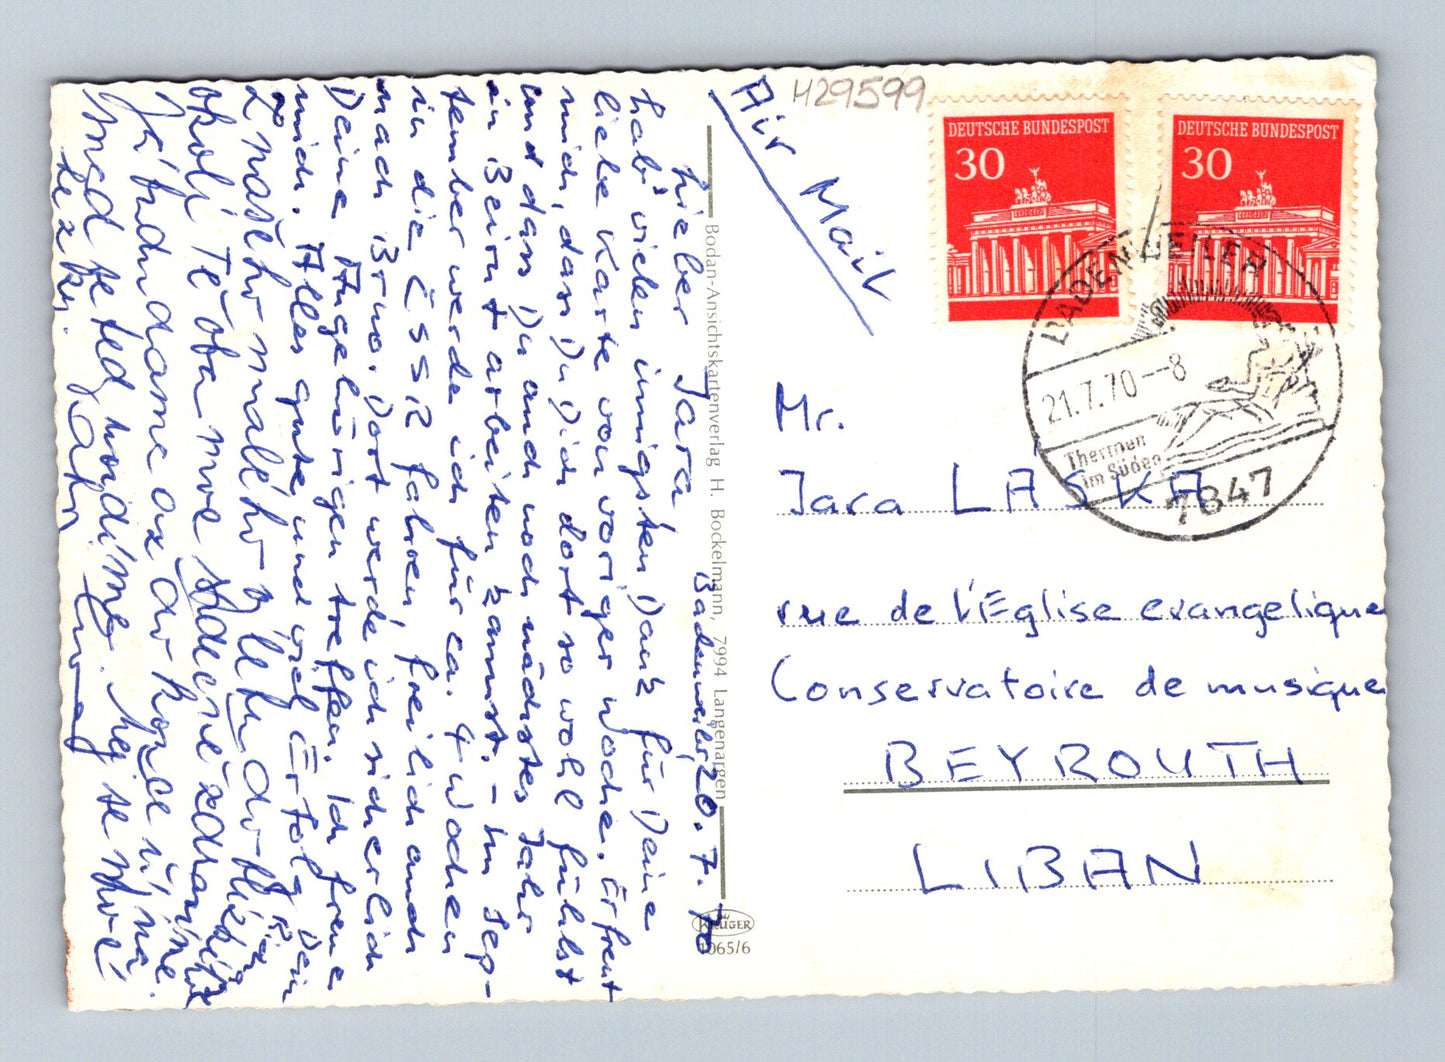 Lieber Jara
Badenweiler, 20. 7. 70
hab' vielen innigsten Dank für Deine
liebe Karte von voriger Woche. Erfreut
mich, dass Du Dich dort so wohl fühlst
und dass Du auch noch nächstes Jahr
in Beirut arbeiten kannst. - Im Sep-
tember werde ich für ca. 4 Wochen
in die ČSSR fahren, freilich auch
nach Brno. Dort werde ich sicherlich
Deine Angehörigen treffen. Ich freue
mich. Alles gute und viel Erfolg Dein
Z našeho malého
okolí Tě oba moc srdečně zdravíme.
hned se teď
hezky.
Air Mail
H29599
DEUTSCHE BUNDESPOST
30
DEUTSCHE BUNDESPOST
30
BADENWEILER
21.7.70-8
Thermen
im Süden
7847
Mr.
Jara LÁSKA
rue de l'Église evangelique
Conservatoire de musique
BEYROUTH
LIBAN
Bodan-Ansichtskartenverlag H. Bockelmann, 7994 Langenargen
KRÜGER
1065/6